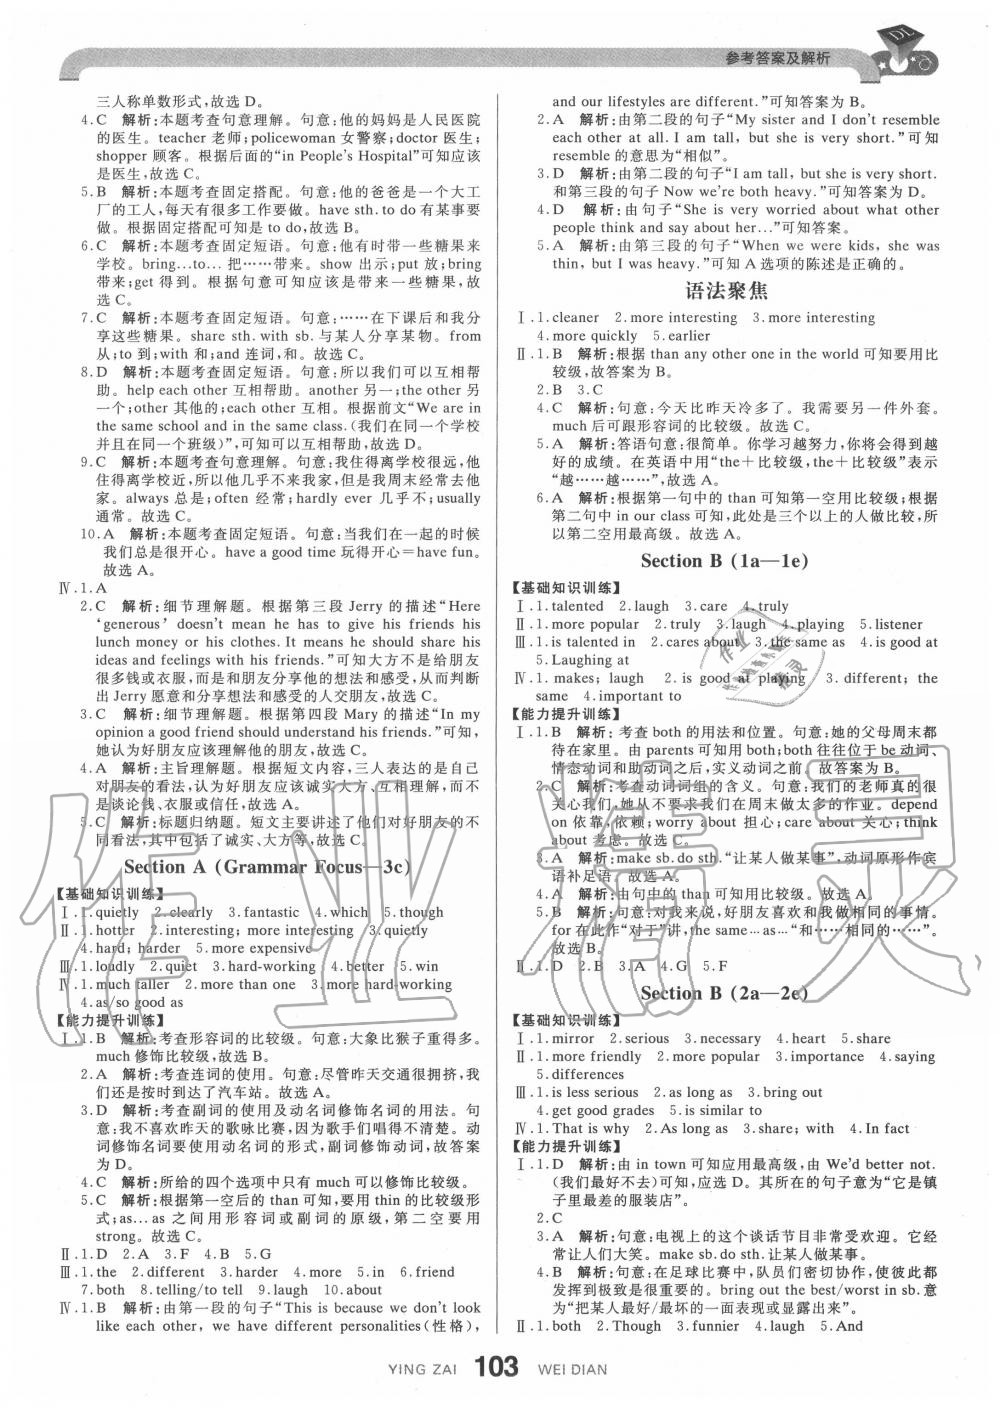 参考答案及解析
DL
三人称单数形式,故选 D。
4.C 解析:本题考查句意理解。句意:他的妈妈是人民医院
的医生。teacher 老师;policewoman 女警察;doctor 医生;
shopper 顾客。根据后面的“in People's Hospital”可知应该
是医生,故选 C。
5.B 解析:本题考查固定搭配。句意:他的爸爸是一个大工
厂的工人,每天有很多工作要做。have sth. to do 有某事要
做。根据固定搭配可知是 to do,故选 B。
6.C 解析:本题考查固定短语。句意:他有时带一些糖果来
学校。bring...to... 把……带来。show 出示;put 放;bring
带来;get 得到。根据句意可知应该是带来一些糖果。
故选 C。
7.C 解析:本题考查固定短语。句意:……在下课后和我分
享这些糖果。share sth. with sb. 与某人分享某物。from
从;to 到;with 和;and 连词,和。故选 C。
8.D 解析:本题考查固定短语。句意:所以我们可以互相帮
助。help each other 互相帮助。another 另一;the other 另
一个;other 其他的;each other 互相。根据前文“We are in
the same school and in the same class.(我们在同一个学校
并且在同一个班级)”,可知可以互相帮助,故选 D。
9.C 解析:本题考查句意理解。句意:我住得离学校很远,他
住得离学校近,所以他几乎不来我家,但是我周末经常去他
家。always 总是;often 经常;hardly ever 几乎不;usually
通常。故选 C。
10.A 解析:本题考查固定短语。句意:当我们在一起的时候
我们总是很开心。have a good time 玩得开心=have fun。
故选 A。
Ⅳ.1.A
2.C 解析:细节理解题。根据第三段 Jerry 的描述“Here
‘generous’ doesn't mean he has to give his friends his
lunch money or his clothes. It means he should share his
ideas and feelings with his friends.”可知大方不是给朋友
很多钱或衣服,而是和朋友分享想法和感受,从而判断
出 Jerry 愿意和分享想法和感受的人交朋友,故选 C。
3.C 解析:细节理解题。根据第四段 Mary 的描述“In my
opinion a good friend should understand his friends.”可知,
她认为好朋友应该理解他的朋友,故选 C。
4.A 解析:主旨理解题。根据短文内容,三人表达的是自己
对朋友的看法,认为好朋友应该诚实大方、互相理解,而不
是谈论钱、衣服或信任,故选 A。
5.C 解析:标题归纳题。短文主要讲述了他们对好朋友的不
同看法,其中包括了诚实、大方等,故选 C。
Section A (Grammar Focus—3c)
【基础知识训练】
Ⅰ.1.quietly 2.clearly 3.fantastic 4.which 5.though
Ⅱ.1.hotter 2.interesting; more interesting 3.quietly
4.hard; harder 5.more expensive
Ⅲ.1.loudly 2.quiet 3.hard-working 4.better 5.win
Ⅳ.1.much taller 2.more than one 3.more hard-working
4.as/so good as
【能力提升训练】
Ⅰ.1.B 解析:考查形容词的比较级。句意:大象比猴子重得多。
much 修饰比较级。故选 B。
2.A 解析:考查连词的使用。句意:尽管昨天交通很拥挤,我
们还是按时到达了汽车站。故选 A。
3.D 解析:考查副词的使用及动名词修饰名词的用法。句
意:我不喜欢昨天的歌咏比赛,因为歌手们唱得不清楚。动
词修饰名词要使用动名词的形式,副词修饰动词,故答案
为 D。
4.C 解析:所给的四个选项中只有 much 可以修饰比较级。
5.C 解析:根据第一空后的 than 可知,要用 thin 的比较级形
式;as... as 之间用形容词或副词的原级,第二空要用
strong。故选 C。
Ⅱ.1.D 2.A 3.F 4.B 5.G
Ⅲ.1.the 2.different 3.harder 4.more 5.in 6.friend
7.both 8.telling/to tell 9.laugh 10.about
Ⅳ.1.B 解析:由第一段的句子“This is because we don't look
like each other, we have different personalities(性格),
and our lifestyles are different.”可知答案为 B。
2.A 解析:由第二段的句子“My sister and I don't resemble
each other at all. I am tall, but she is very short.”可知
resemble 的意思为“相似”。
3.D 解析:由第二段的句子“I am tall, but she is very short.
和第三段的句子 Now we're both heavy.”可知答案为 D。
4.D 解析:由句子“She is very worried about what other
people think and say about her...”可知答案。
5.A 解析:由第三段的句子“When we were kids, she was
thin, but I was heavy.”可知 A 选项的陈述是正确的。
语法聚焦
Ⅰ.1.cleaner 2.more interesting 3.more interesting
4.more quickly 5.earlier
Ⅱ.1.B 解析:根据 than any other one in the world 可知要用比
较级,故答案选 B。
2.B 3.C
4.C 解析:句意:今天比昨天冷多了。我需要另一件外套。
much 后可跟形容词的比较级。故选 C。
5.A 解析:答语句意:很简单。你学习越努力,你将会得到越
好的成绩。在英语中用“the+比较级,the+比较级”表示
“越……越……”,故选 A。
6.A 解析:根据第一句中的 than 可知第一空用比较级;根据
第二句中 in our class 可知,此处是三个以上的人做比较,所
以第二空用最高级。故选 A。
Section B (1a—1e)
【基础知识训练】
Ⅰ.1.talented 2.laugh 3.care 4.truly
Ⅱ.1.more popular 2.truly 3.laugh 4.playing 5.listener
Ⅲ.1.is talented in 2.cares about 3.the same as 4.is good at
5.Laughing at
Ⅳ.1.makes; laugh 2.is good at playing 3.different; the
same 4.important to
【能力提升训练】
Ⅰ.1.B 解析:考查 both 的用法和位置。句意:她的父母周末都
待在家里。由 parents 可知用 both;both 往往位于 be 动词、
情态动词和助动词之后,实义动词之前。故答案为 B。
2.C 解析:考查动词词组的含义。句意:我们的老师真的很
关心我们,她从不要求我们在周末做太多的作业。depend
on 依靠,依赖;worry about 担心;care about 关心;think
about 考虑。故选 C。
3.A 解析:make sb. do sth.“让某人做某事”,动词原形作宾
语补足语。故选 A。
4.A 解析:由句中的 than 可知用比较级。故选 A。
5.B 解析:句意:对我来说,好朋友喜欢和我做相同的事情。
for 在此作“对于”讲,the same...as...“和……相同的……”。
故选 B。
Ⅱ.1.D 2.B 3.A 4.G 5.F
Section B (2a—2e)
【基础知识训练】
Ⅰ.1.mirror 2.serious 3.necessary 4.heart 5.share
Ⅱ.1.more friendly 2.more popular 3.importance 4.saying
5.differences
Ⅲ.1.is less serious 2.as long as 3.bring out
4.get good grades 5.is similar to
Ⅳ.1.That is why 2.As long as 3.share; with 4.In fact
【能力提升训练】
Ⅰ.1.D 解析:由 in town 可知应用最高级,由 We'd better not.
(我们最好不去)可知,应选 D。其所在的句子意为“它是镇
子里最差的服装店”。
2.C
3.A 解析:句意:电视上的这个谈话节目非常受欢迎。它经
常让人们大笑。make sb. do sth. 让某人做某事。
4.B 解析:句意:在足球比赛中,队员们密切协作,使他们都
发挥到极致是很重要的。bring out the best/worst in sb. 意
为“把某人最好/最坏的一面表现或显露出来”。
Ⅱ.1.both 2.Though 3.funnier 4.laugh 5.And
YING ZAI 103 WEI DIAN
作业精灵